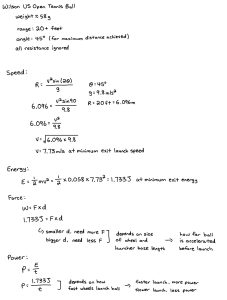 Wilson US Open Tennis Ball
weight ≈ 58g
range: 20+ feet
angle: 45° (for maximum distance achieved)
air resistance ignored
Speed:
R = v² sin(2θ) / g
θ = 45°
g = 9.8 m/s²
R = 20 ft = 6.096m
6.096 = v² sin90 / 9.8
6.096 = v² / 9.8
v = √6.096 × 9.8
v = 7.73 m/s at minimum exit launch speed
Energy:
E = 1/2 mv² = 1/2 × 0.058 × 7.73² = 1.733J at minimum exit energy
Force:
W = F × d
1.733J = F × d
↳ smaller d, need more F
bigger d, need less F
depends on size of wheel and launcher base length
→ how far ball is accelerated before launch
Power:
P = E / t
P = 1.733J / t
depends on how fast wheels launch ball
→ faster launch, more power
slower launch, less power